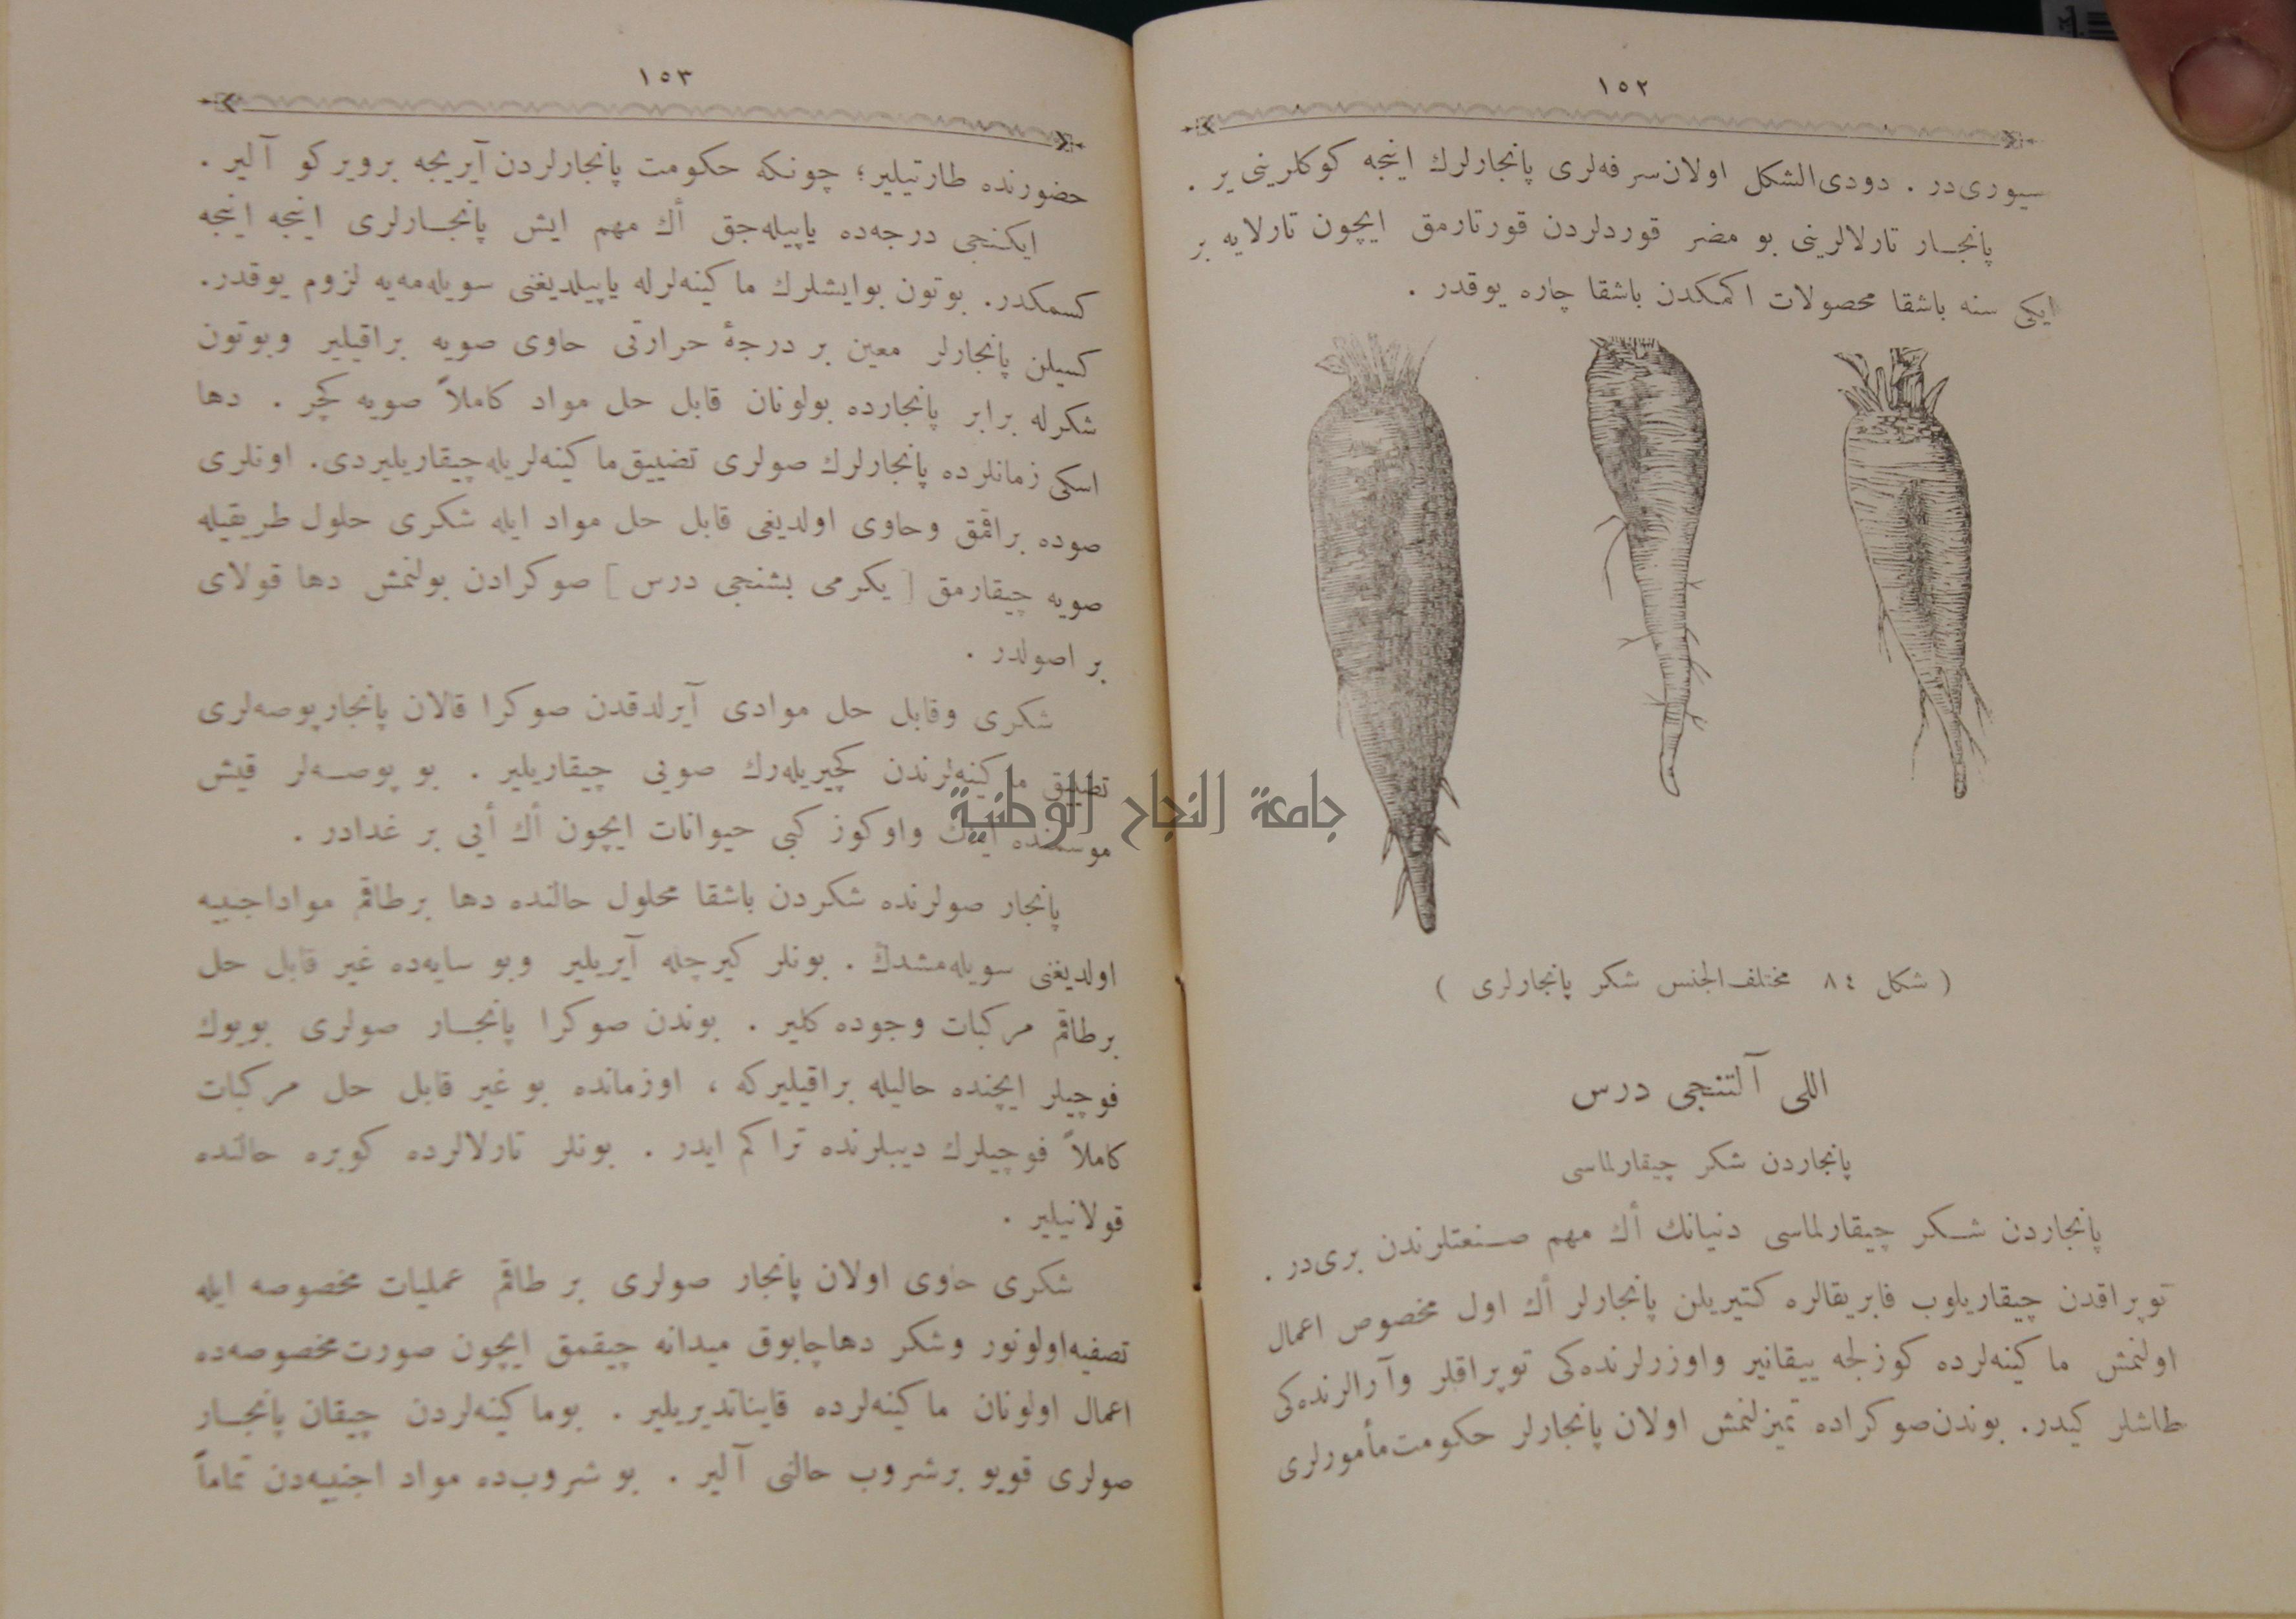 ١٥٢
سیوری‌در . دودی‌الشكل اولان‌سرفه‌لری پانجارلرك اینجه كوكلرینی‌یر .
پانجـار تارلالرینی بو مضر قوردلردن قورتارمق ایچون تارلایه بر
ایكی سنه باشقا محصولات اكمكدن باشقا چاره یوقدر .
( شكل ٨٤ مختلف‌الجنس شكر پانجارلری )
اللی آلتنجی درس
پانجاردن شكر چیقارلماسی
پانجاردن شـكر چیقارلماسی دنیانك أك مهم صـنعتلرندن بری‌در .
توپراقدن چیقاریلوب فابریقالره كتیریلن پانجارلر أك اول مخصوص اعمال
اولنمش ماكینه‌لرده كوزلجه ییقانیر واوزرلرنده‌كی توپراقلر وآرالرنده‌كی
طاشلر كیدر. بوندن‌صوكراده تمیزلنمش اولان پانجارلر حكومت‌مأمورلری
١٥٣
حضورنده طارتیلیر؛ چونكه حكومت پانجارلردن آیریجه برویركو آلیر .
ایكنجی درجه‌ده یاپیله‌جق أك مهم ایش پانجـارلری اینجه اینجه
كسمكدر. بوتون بوایشلرك ماكینه‌لرله یاپیلدیغنی سویله‌مه‌یه لزوم یوقدر.
كسیلن پانجارلر معین بر درجۀ حرارتی حاوی صویه براقیلیر وبوتون
شكرله برابر پانجارده بولونان قابل حل مواد كاملاً صویه كچر . دها
اسكی زمانلرده پانجارلرك صولری تضییق‌ماكینه‌لریله‌چیقاریلیردی. اونلری
صوده براقمق وحاوی اولدیغی قابل حل مواد ایله شكری حلول طریقیله
صویه چیقارمق [یكرمی بشنجی درس] صوكرادن بولنمش دها قولای
بر اصولدر .
شكری وقابل حل موادی آیرلدقدن صوكرا قالان پانجارپوصه‌لری
تضییق ماكینه‌لرندن كچیریله‌رك صویی چیقاریلیر . بو پوصـه‌لر قیش
موسمنده اینك واوكوز كبی حیوانات ایچون أك أیی بر غدادر .
پانجار صولرنده شكردن باشقا محلول حالنده دها برطاقم مواداجنبیه
اولدیغنی سویله‌مشدك . بونلر كیرجله آیریلیر وبو سایه‌ده غیر قابل حل
برطاقم مركبات وجوده كلیر . بوندن صوكرا پانجـار صولری بویوك
فوچیلر ایچنده حالیله براقیلیركه ، اوزمانده بو غیر قابل حل مركبات
كاملاً فوچیلرك دیبلرنده تراكم ایدر . بونلر تارلالرده كوبره حالنده
قولانیلیر .
شكری حاوی اولان پانجار صولری بر طاقم عملیات مخصوصه ایله
تصفیه‌اولونور وشكر دهاچابوق میدانه چیقمق ایچون صورت‌مخصوصه‌ده
اعمال اولونان ماكینه‌لرده قایناتدیریلیر . بوماكینه‌لردن چیقان پانجـار
صولری قویو برشروب حالنی آلیر . بو شروب‌ده مواد اجنبیه‌دن تماماً
جامعة النجاح الوطنية